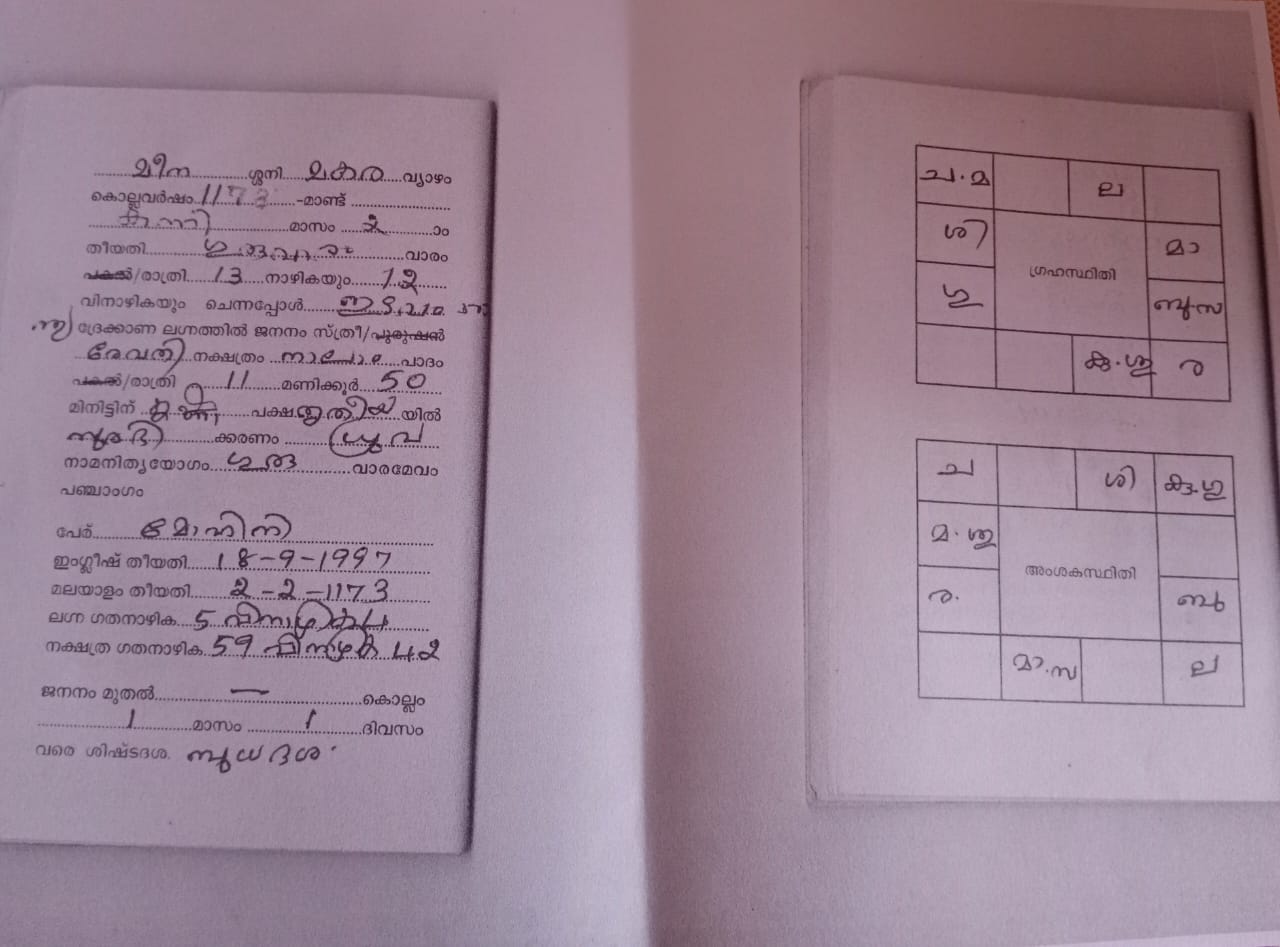 മീന ശ്ശനി മകര വ്യാഴം
കൊല്ലവർഷം 1173 -മാണ്ട്
കന്നി മാസം 2 ാം
തീയതി ഗുരുവാര വാരം
പകൽ/രാത്രി 13 നാഴികയും 12
വിനാഴികയും ചെന്നപ്പോൾ
ദ്രേക്കാണ ലഗ്നത്തിൽ ജനനം സ്ത്രീ/പുരുഷൻ
രേവതി നക്ഷത്രം നാലാം പാദം
പകൽ/രാത്രി 11 മണിക്കൂർ 50
മിനിട്ടിന് കൃഷ്ണ പക്ഷ തൃതീയ യിൽ
സുരഭി ക്കരണം ധ്രുവ
നാമനിത്യയോഗം ഗുരു വാരമേവം
പഞ്ചാംഗം
പേര് മോഹിനി
ഇംഗ്ലീഷ് തീയതി 18-9-1997
മലയാളം തീയതി 2-2-1173
ലഗ്ന ഗതനാഴിക 5 വിനാഴിക 4
നക്ഷത്ര ഗതനാഴിക 59 വിനാഴിക 42
ജനനം മുതൽ — കൊല്ലം
1 മാസം 1 ദിവസം
വരെ ശിഷ്ടദശ. ബുധദശ
ച.മ ല
ശി മാ
ഗ്രഹസ്ഥിതി
ഗു ബു.സ
കു.ശു ര
ച ശി കു.ഗു
മ.ശു
അംശകസ്ഥിതി
ര. ബു
മാ.സ ല